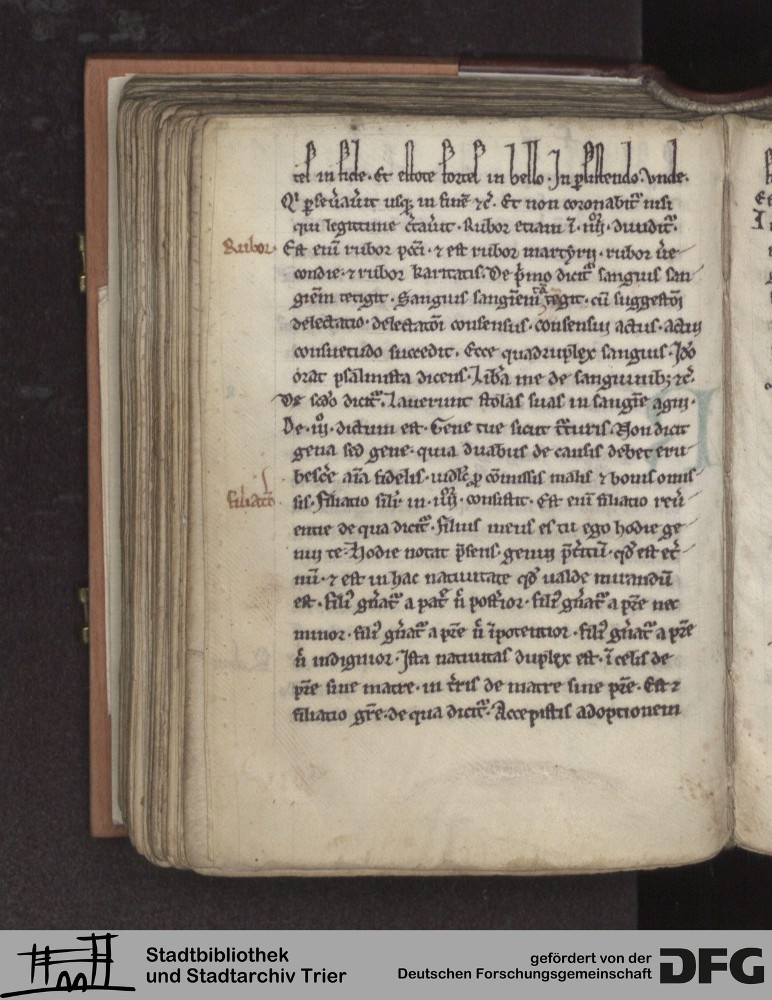 tes in fide. Et estote fortes in bello. In p̄sistendo. Vnde.
Qͥ p̄seūaūit usq; in finē ⁊c̄. Et non coronabit᷑ nisi
qui legittime c̄tauit. Rubor etiam ī. iiijor. diuidit᷑.
Rubor. Est eni̅ rubor pcc̄i. ⁊ est rubor martẏrij. rubor ūe
condie. ⁊ rubor karitatis. De p̄mo dicit᷑ sanguis san
guiēm tetigit. Sanguis sanguiēm tegit. cū suggestōi
delectatio. delectatōi consensus. consensui actus. actui
consuetudo succedit. Ecce quadruplex sanguis. Ido
orat psalmista dicens. Liba me de sanguinib; ⁊c̄.
De scd̄o dicit᷑. Lauerunt stolas suas in sanguīe agni.
De. iijo. dictum est. Gene tue sicut t̄turis. Non dicit
gena sed gene. quia duabus de causis debet eru
besc̄e aīa fidelis. uidlc̄ p̄ cōmissis malis ⁊ bonis omis
filiatō. sis. Filiatio filīj in. iiijor. consistit. Est eni̅ filiatio reū
entie de qua dicit᷑. filius meus es tu ego hodie ge
nui te. Hodie notat p̄sens. genui p̄t̄itū. qd̄ est et̄
nū. ⁊ est in hac natiuitate qd̄ ualde mirandū
est. fili᷒ gn̄at᷑ a pat̄ n̄ post̄ior. fili᷒ gn̄at᷑ a pr̄e nec
minor. fili᷒ gn̄at᷑ a pr̄e n̄ īpotentior. fili᷒ gn̄at᷑ a pr̄e
n̄ indignior. Ista natiuitas duplex est. ī celis de
pr̄e sine matre. in t̄ris de matre sine pr̄e. Est ⁊
filiatio gr̄e. de qua dicit᷑. Accepistis adoptionem
Stadtbibliothek
und Stadtarchiv Trier
gefördert von der
Deutschen Forschungsgemeinschaft
DFG